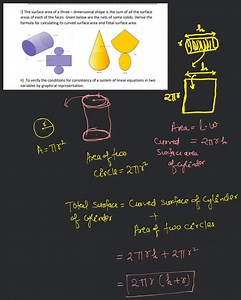 i) The surface area of a three – dimensional shape is the sum of all the surface
areas of each of the faces. Given below are the nets of some solids. Derive the
formula for calculating its curved surface area and Total surface area.
ii) To verify the conditions for consistency of a system of linear equations in two
variables by graphical representation
h
r
h
2πr
r
A = πr²
Area = l·w
Curved = 2πrh
Surface area
of cylinder
Area of two
circles = 2πr²
h
Total surface = Curved surface of cylinder
of cylinder
+
Area of two circles
= 2πrh + 2πr²
= 2πr (h+r)